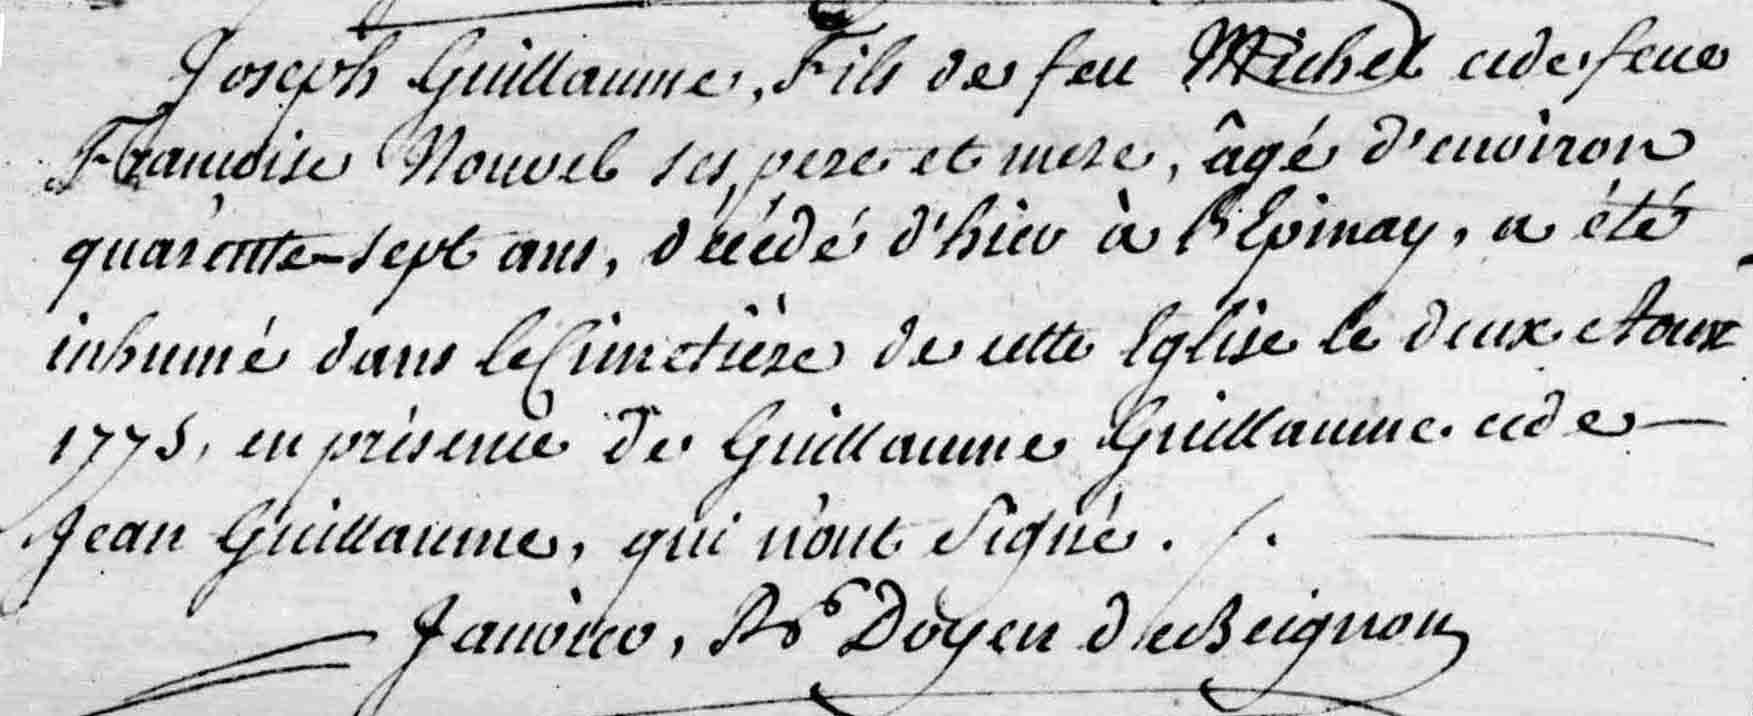 Joseph Guillaume, Fils de feu Michel et de feue
Francoise Nouvel ses pere et mere, âgé d'environ
quarente-sept ans, décédé d'hier à l'Epinay, a été
inhumé dans le Cimetière de cette Eglise le deux Aoux
1775, en présence de Guillaume Guillaume et de
Jean Guillaume, qui n'ont signé. /.
Doyen de Beignon